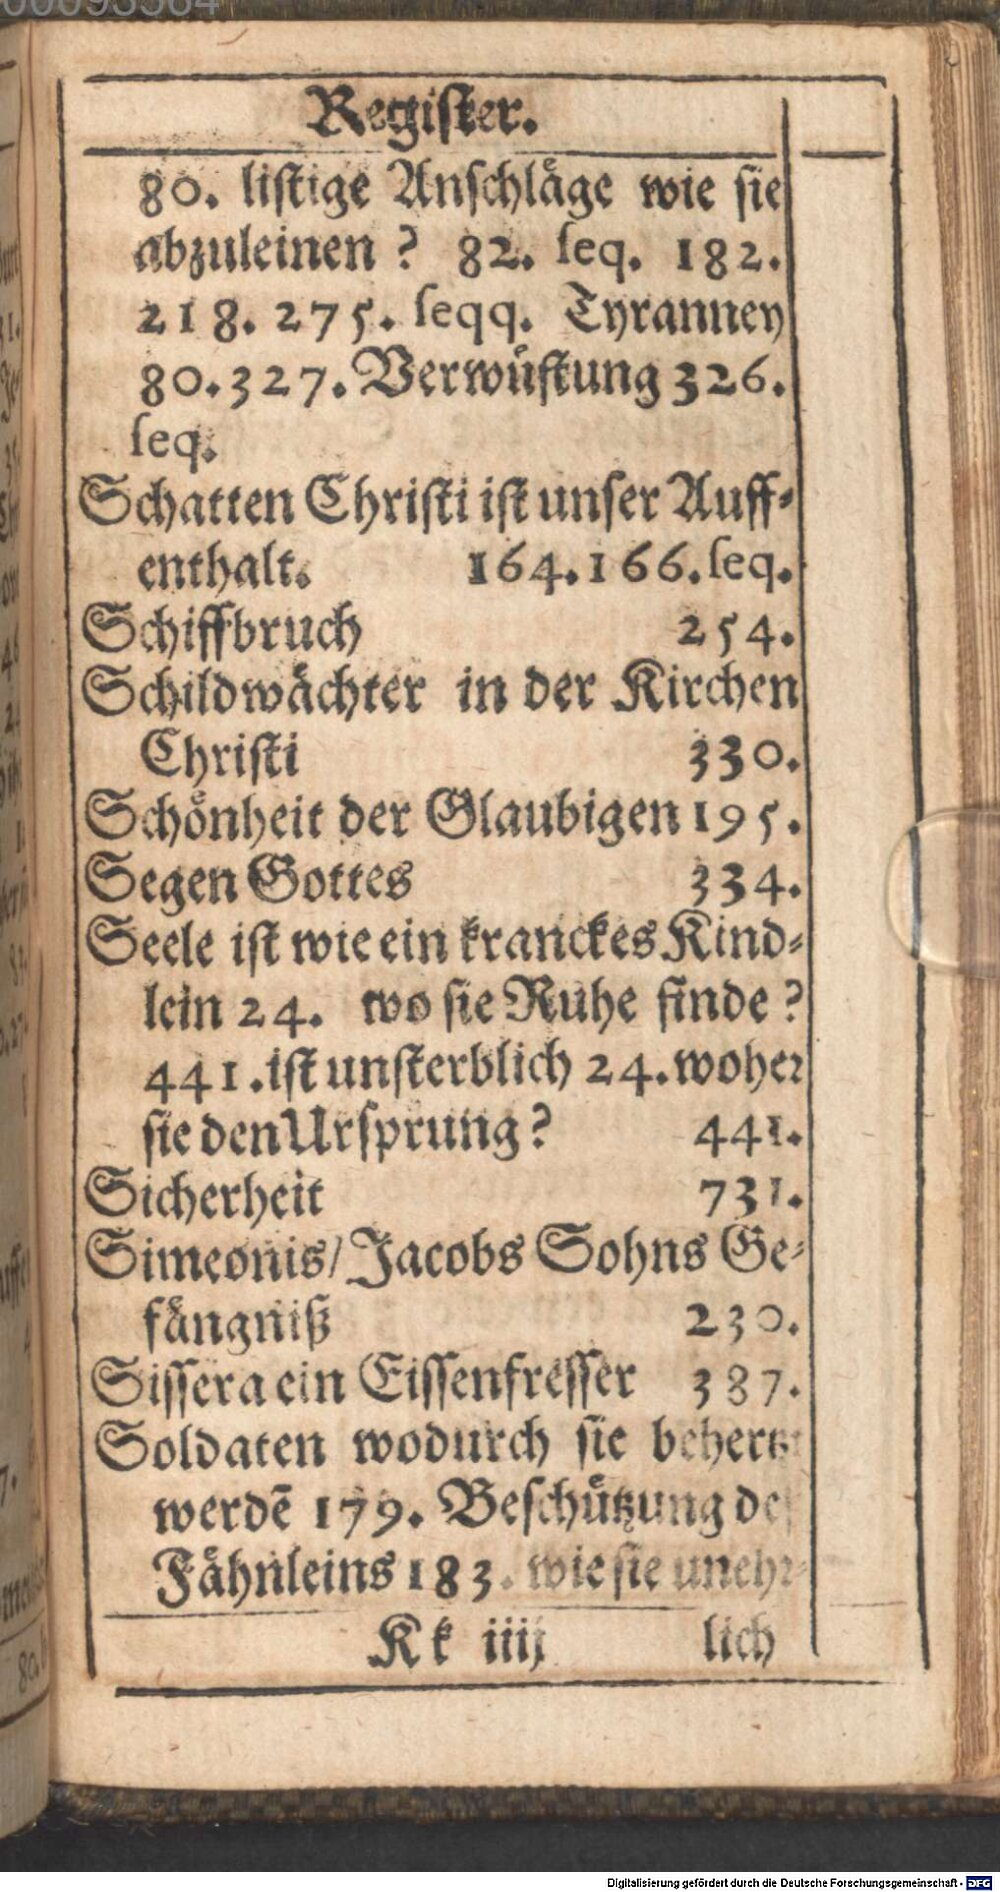 Register.
80. listige Anschläge wie sie
abzuleinen? 82. seq. 182.
218. 275. seqq. Tyranney
80. 327. Verwüstung 326.
seq.
Schatten Christi ist unser Auff-
enthalt. 164. 166. seq.
Schiffbruch 254.
Schildwächter in der Kirchen
Christi 330.
Schönheit der Glaubigen 195.
Segen Gottes 334.
Seele ist wie ein kranckes Kind-
lein 24. wo sie Ruhe finde?
441. ist unsterblich 24. woher
sie den Ursprung? 441.
Sicherheit 731.
Simeonis/ Jacobs Sohns Ge-
fängniß 230.
Sissera ein Eissenfresser 387.
Soldaten wodurch sie behertzt
werdē 179. Beschützung des
Fähnleins 183. wie sie unehr-
Kk iiij lich
Digitalisierung gefördert durch die Deutsche Forschungsgemeinschaft - DFG